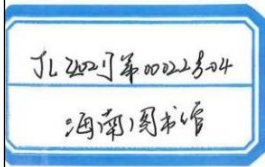 JL2021第00022号04
海南图书馆